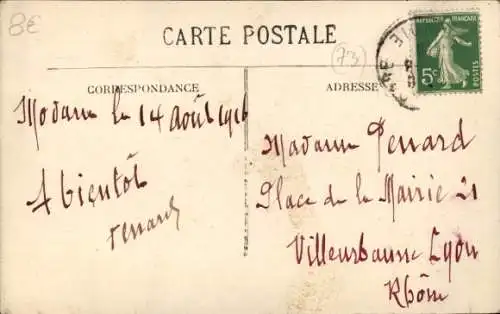 8€
CARTE POSTALE
73
CORRESPONDANCE
ADRESSE
REPUBLIQUE FRANÇAISE
5c
POSTES
Modane le 14 Août 1916
A bientôt
Penard
Madame Penard
Place de la Mairie 21
Villeurbanne Lyon
Rhône